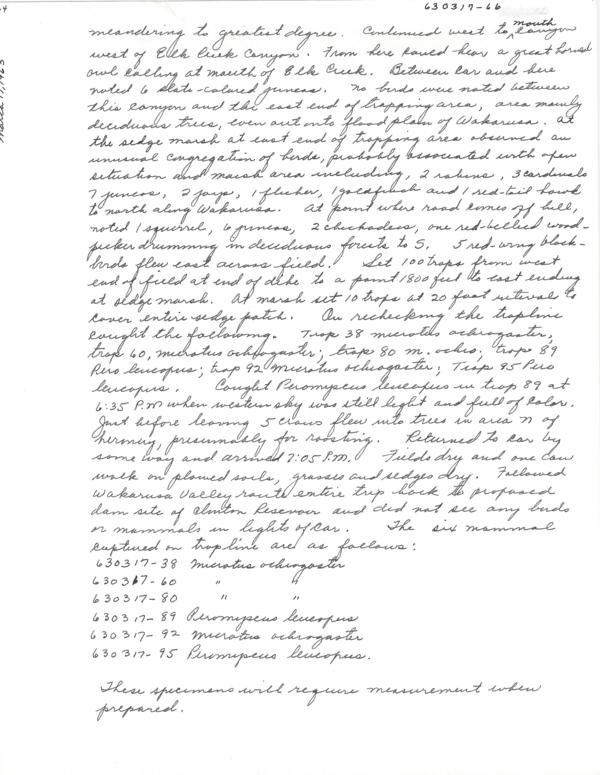 630317-66
March 17, 1963
meandering to greatest degree. Continued west to mouth canyon
west of Elk Creek Canyon. From here could hear a great horned
owl calling at mouth of Elk Creek. Between car and here
noted 6 slate-colored juncos. No birds were noted between
this canyon and the east end of trapping area, area mainly
deciduous trees, even out onto flood plain of Wakarusa. At
the sedge marsh at east end of trapping area observed an
unusual congregation of birds, probably associated with open
situation and marsh area including, 2 robins, 3 cardinals
7 juncos, 2 jays, 1 flicker, 1 goldfinch and 1 red-tail hawk
to north along Wakarusa. At point where road comes off hill,
noted 1 squirrel, 6 juncos, 2 chickadees, one red-bellied wood-
pecker drumming in deciduous forests to S. 5 red-wing black-
birds flew east across field. Set 100 traps from west
end of field at end of dike to a point 1800 feet to east ending
at sedge marsh. At marsh set 10 traps at 20 foot intervals to
cover entire sedge patch. On rechecking the trapline
caught the following. Trap 38 microtus ochrogaster,
trap 60, microtus ochrogaster; trap 80 m. ochro; trap 89
Pero leucopus; trap 92 Microtus ochrogaster; Trap 95 Pero
leucopus. Caught Peromyscus leucopus in trap 89 at
6:35 P.M when western sky was still light and full of color.
Just before leaving 5 crows flew into trees in area N of
presumably for roosting. Returned to car by
same way and arrived 7:05 P.M. Fields dry and one can
walk on plowed soils, grasses and sedges dry. Followed
Wakarusa Valley route entire trip back to proposed
dam site of Clinton Reservoir and did not see any birds
or mammals in lights of car. The six mammal
captured on trapline are as follows:
630317-38 Microtus ochrogaster
630317-60 " "
630317-80 " "
630317-89 Peromyscus leucopus
630317-92 Microtus ochrogaster
630317-95 Peromyscus leucopus.
These specimens will require measurement when
prepared.